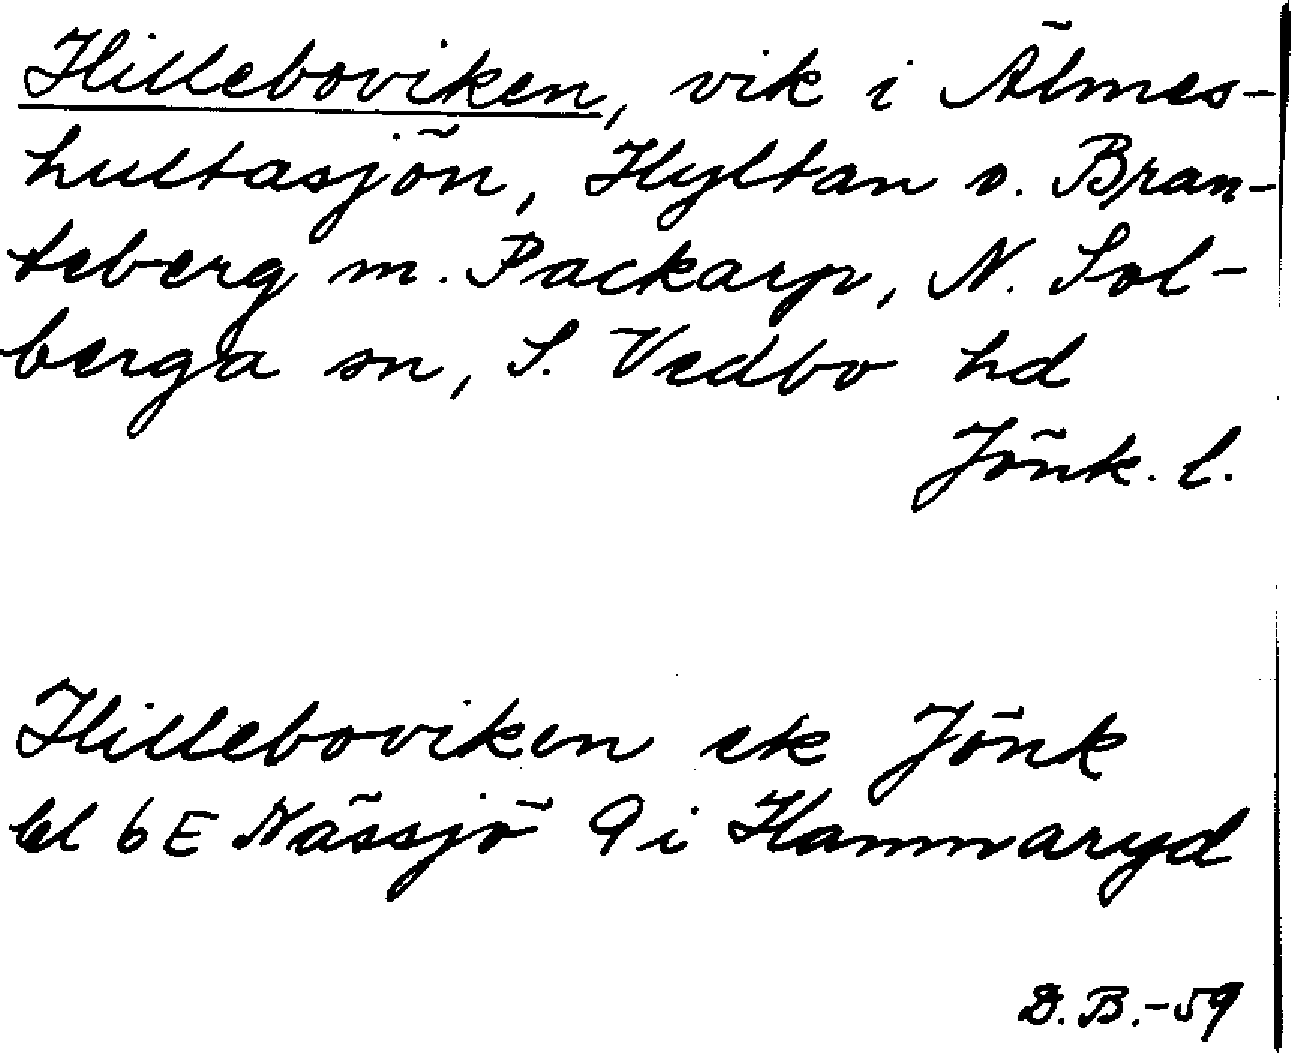 Hilleboviken, vik i Älmes-
hultasjön, Hyltan o. Bran-
teberg m. Packarp, N. Sol-
berga sn, S. Vedbo hd
Jönk. l.
Hilleboviken ek Jönk
bl 6E Nässjö 9i Hammaryd
D.B.-59